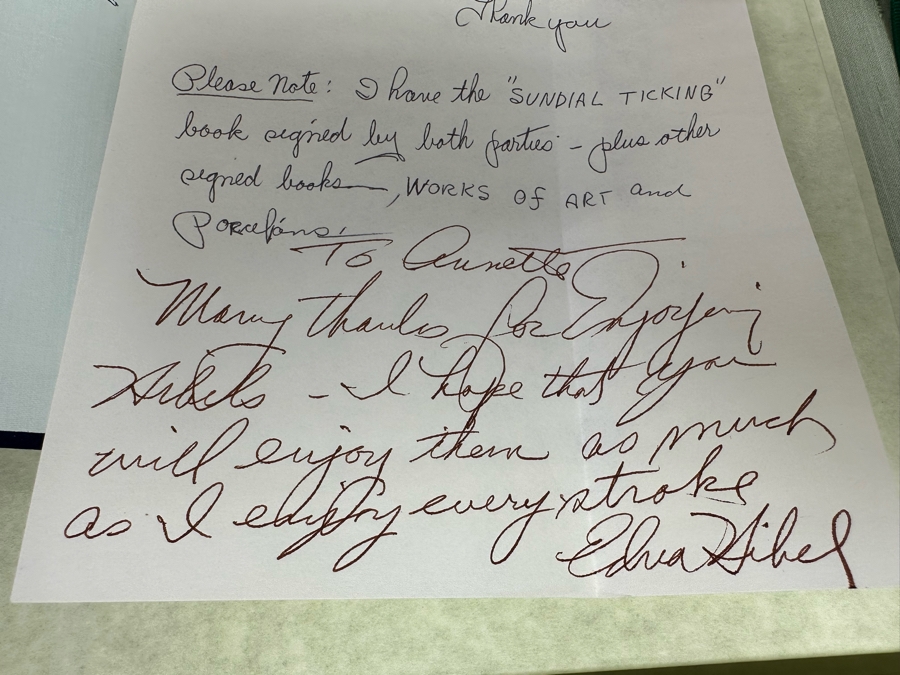 Thank you
Please Note: I have the "SUNDIAL TICKING"
book signed by both parties - plus other
signed books—, WORKS OF ART and
Porcelains.
To Annette
Many thanks for Enjoying
Hibels - I hope that you
will enjoy them as much
as I enjoy every stroke
Edna Hibel